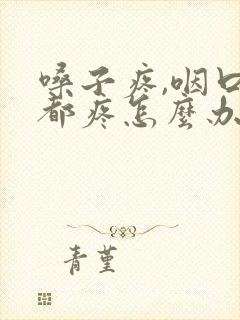 嗓子疼,咽口
都疼怎麼办
青堇